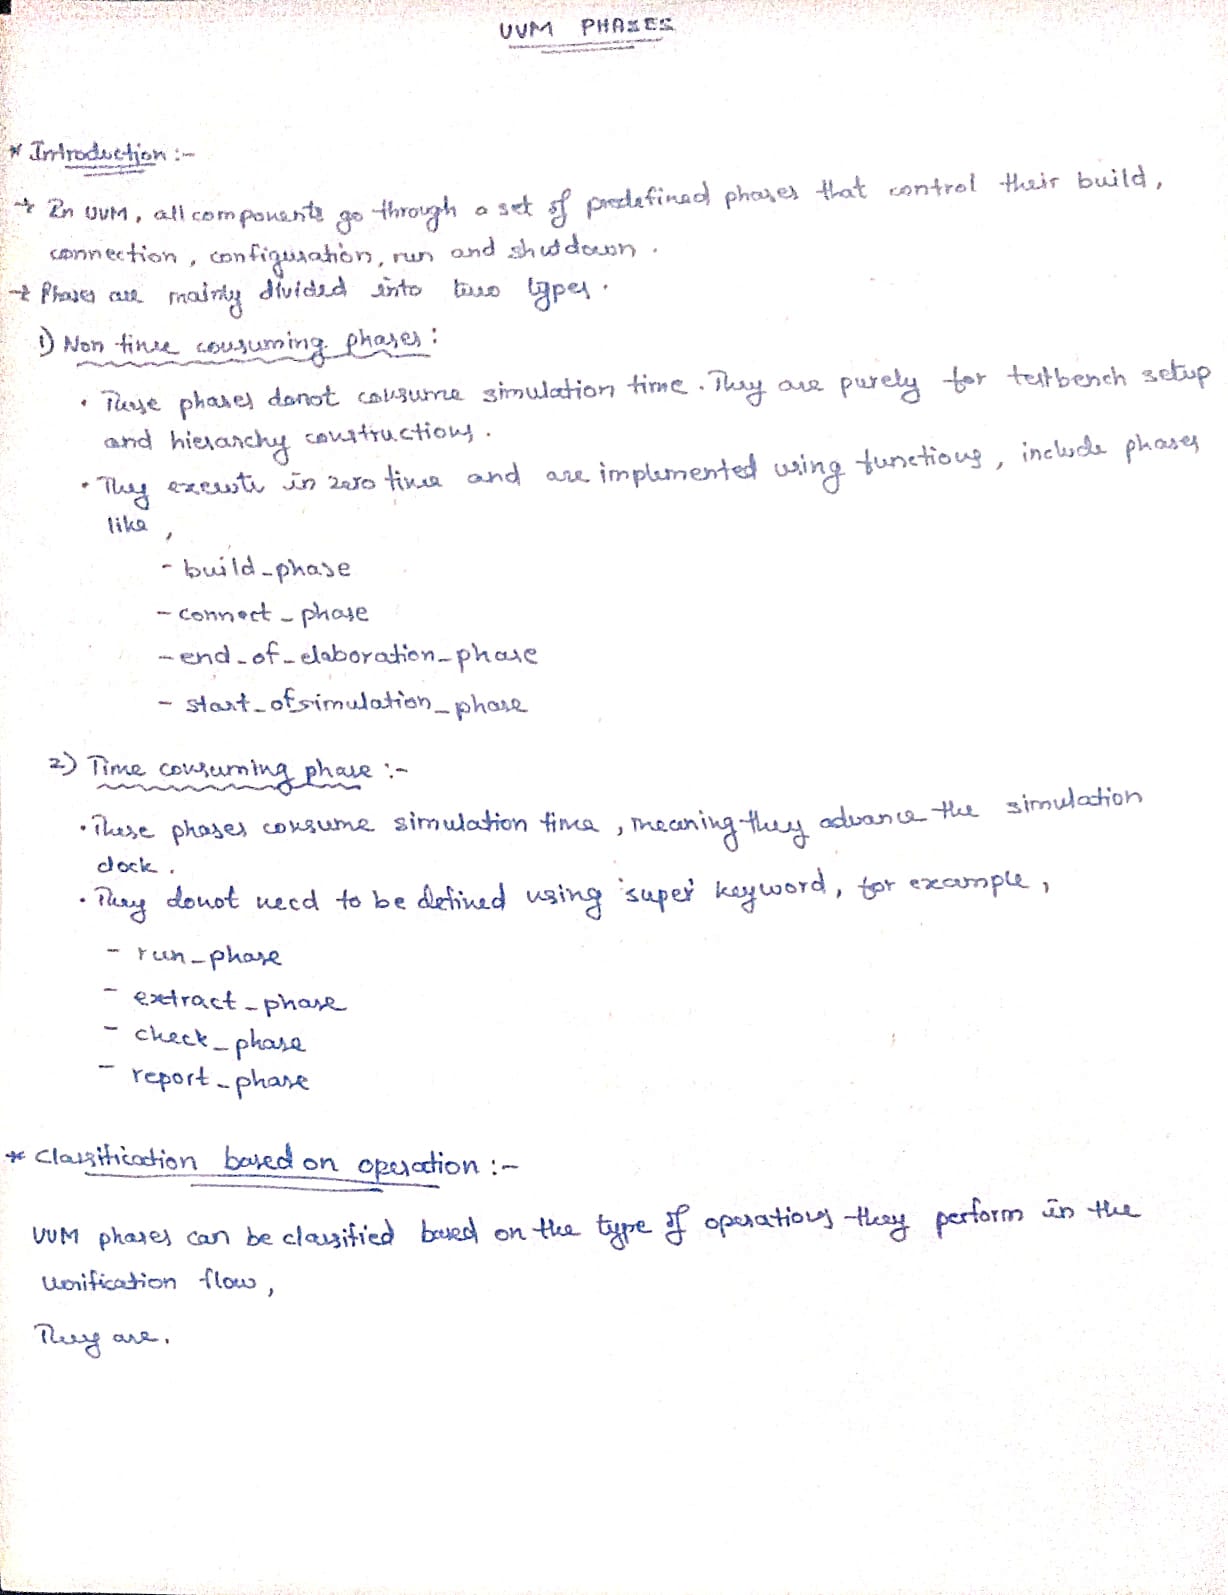 UVM PHASES
* Introduction :-
→ In UVM, all components go through a set of predefined phases that control their build,
connection, configuration, run and shutdown.
→ Phases are mainly divided into two types.
1) Non time consuming phases:
• These phases donot consume simulation time. They are purely for testbench setup
and hierarchy constructions.
• They execute in zero time and are implemented using functions, include phases
like,
- build_phase
- connect_phase
- end_of_elaboration_phase
- start_ofsimulation_phase
2) Time consuming phase :-
• These phases consume simulation time, meaning they advance the simulation
clock.
• They donot need to be defined using 'super' keyword, for example,
- run_phase
- extract_phase
- check_phase
- report_phase
* Classification based on operation :-
UVM phases can be classified based on the type of operations they perform in the
verification flow,
They are.